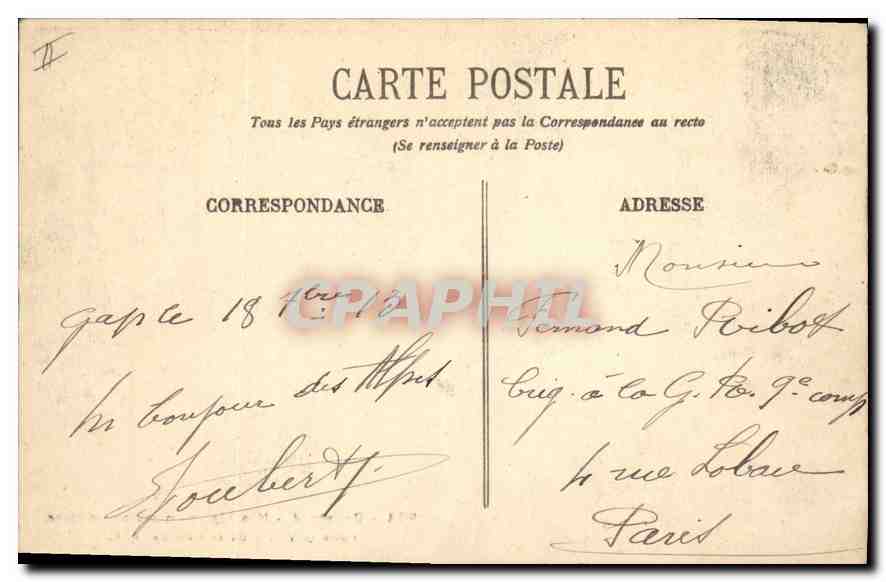 CARTE POSTALE
Tous les Pays étrangers n'acceptent pas la Correspondance au recto
(Se renseigner à la Poste)
CORRESPONDANCE
ADRESSE
Monsieur
Gap le 18 7bre 13
Fernand Ribot
un bonjour des Alpes
brig. à la G. R. 9e comp
Joubert
4 rue Lobau
Paris
CPAPHIL